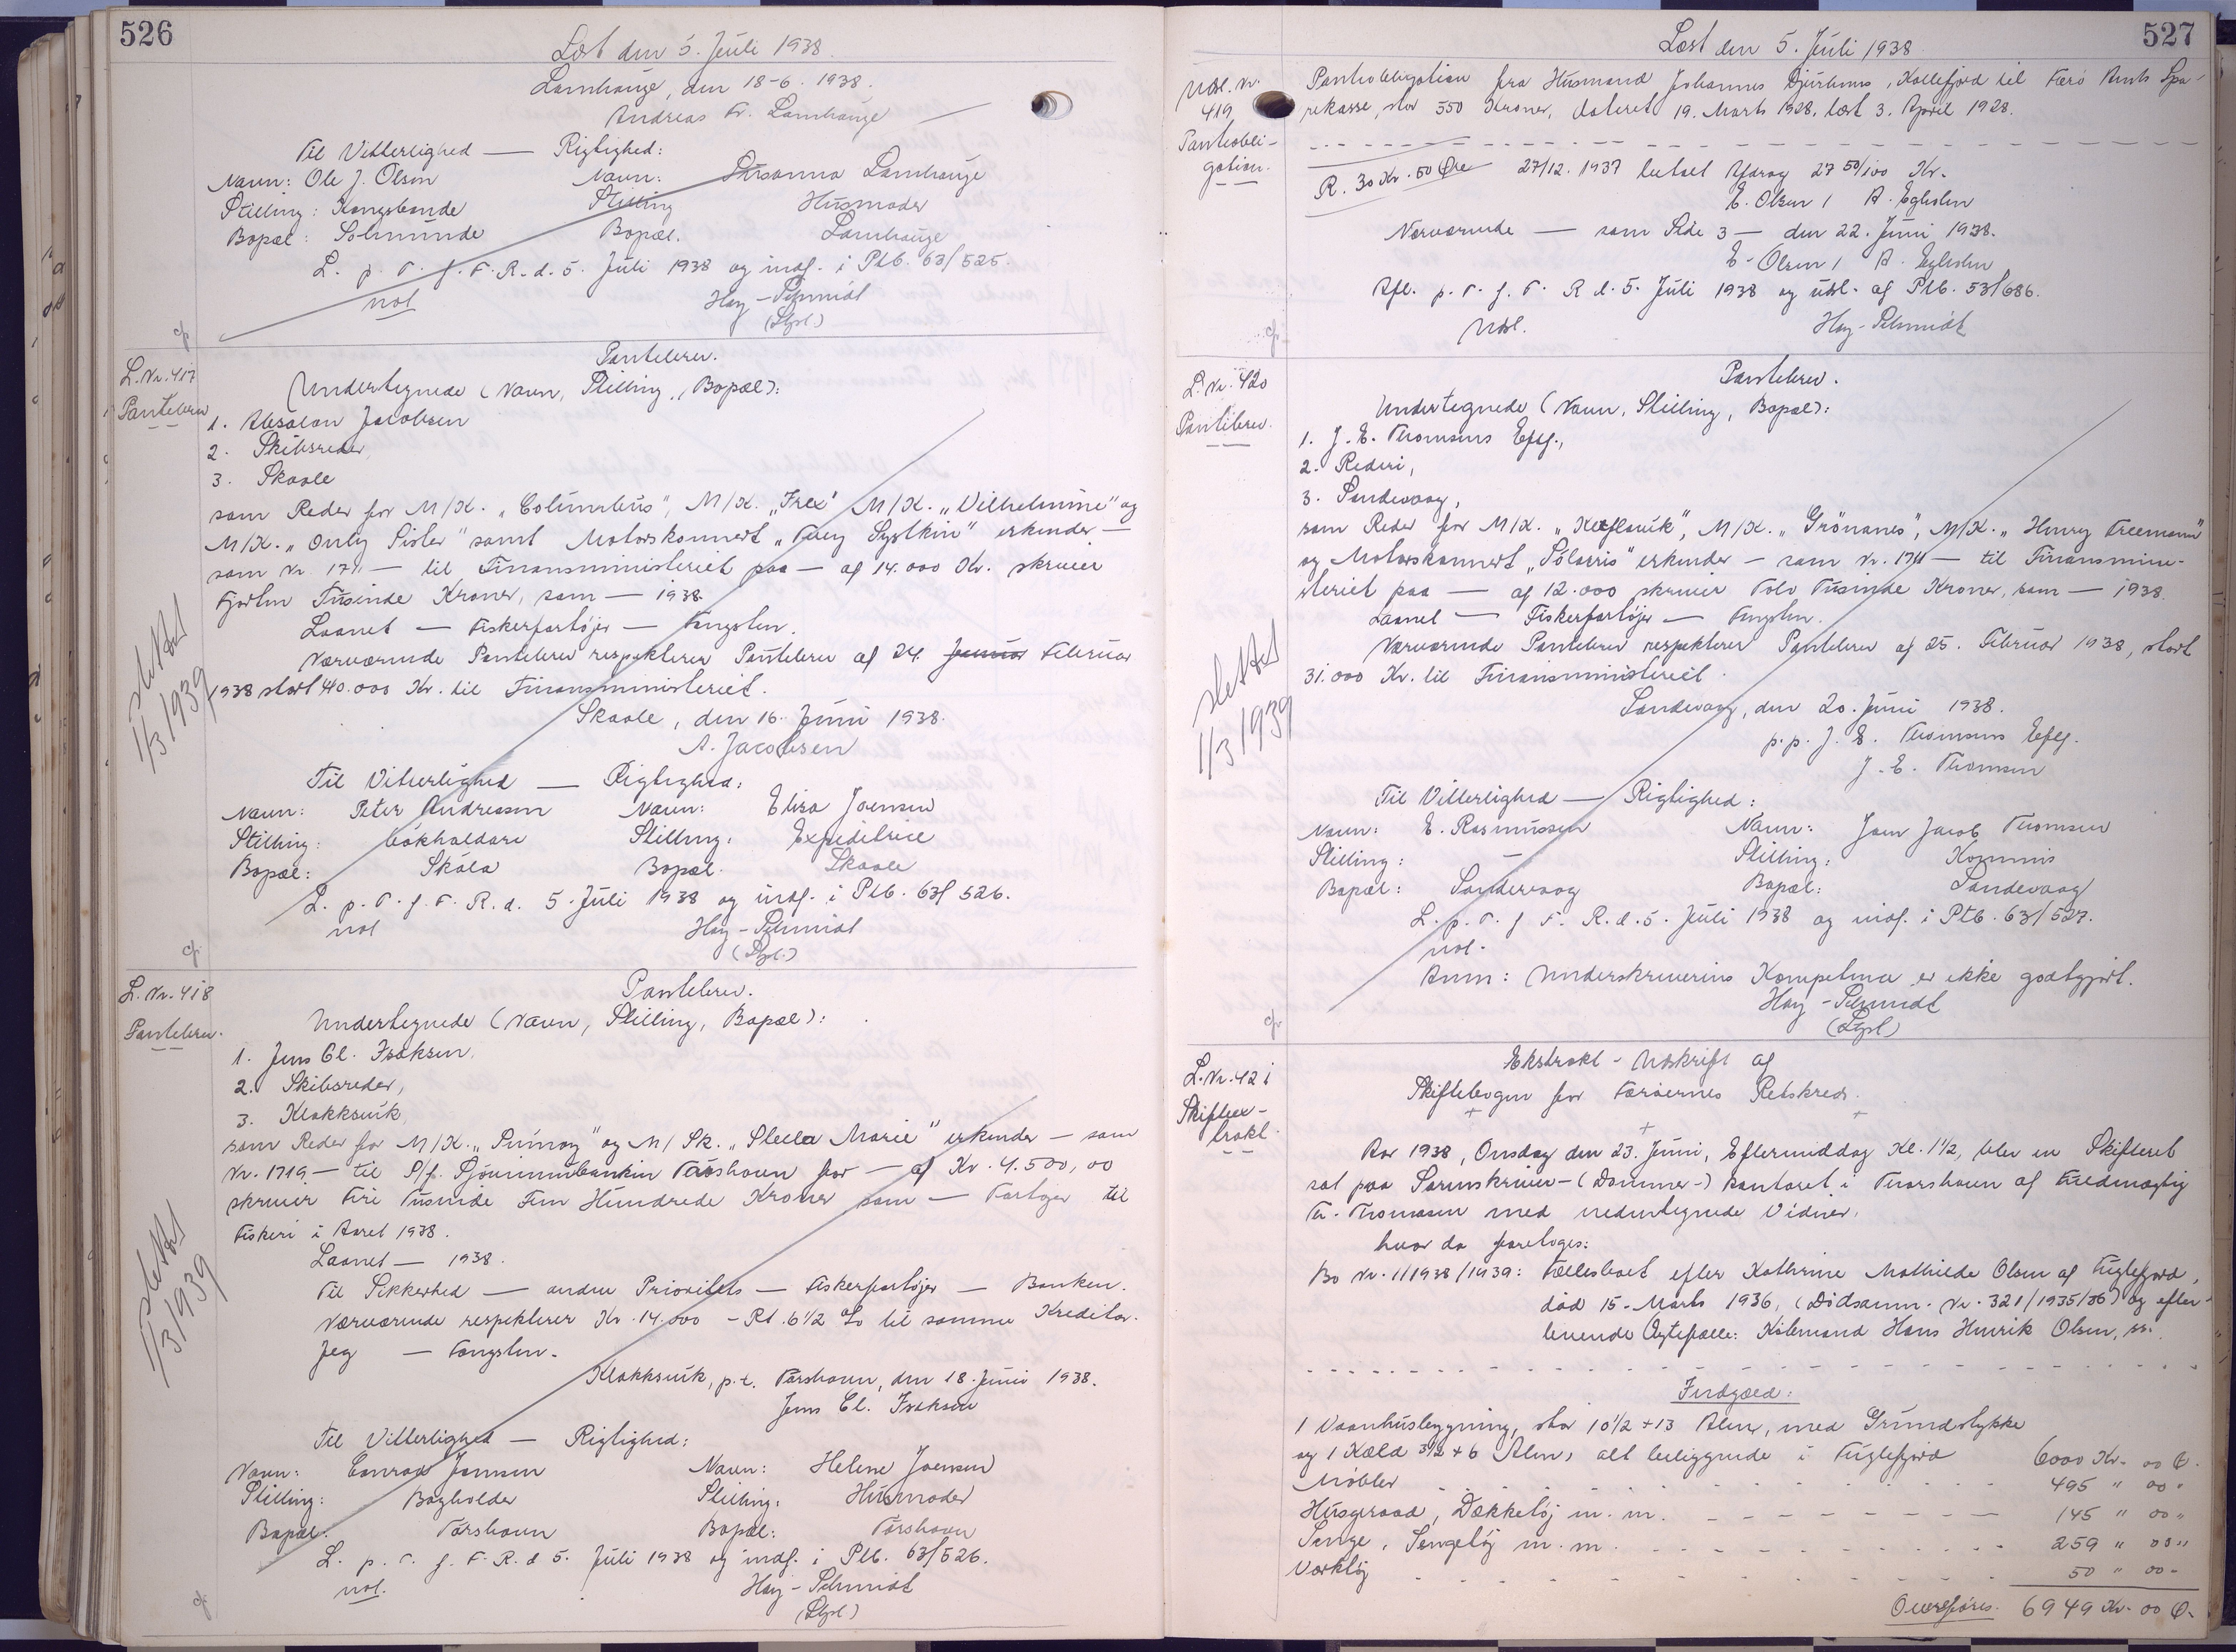 526
Læst den 5. Juli 1938.
Lambauge, den 18-6. 1938.
Andreas Fr. Lambauge
Til Vitterlighed — Rigtighed:
Navn: Ole J. Olsen Navn: Susanna Lambauge
Stilling: Kongsbonde Stilling Husmoder
Bopæl: Solmunde Bopæl. Lambauge
L. p. T. f. F. R. d. 5. Juli 1938 og indf. i Ptb. 63/525.
not Hay-Schmidt
(Stpl)
cf.
L. Nr. 417
Pantebrev
Pantebrev.
Undertegnede (Navn, Stilling, Bopæl):
1. Absalon Jacobsen
2. Skibsreder,
3. Skaale
som Reder for M/K. „Columbus", M/K. „Frex" M/K. „Vilhelmine" og
M/K. „Only Sister" samt Motorskonnert „Tvey Systkin" erkender —
som Nr. 171 — til Finansministeriet paa — af 14.000 Kr. skriver
Fjorten Tusinde Kroner, som — 1938
Laanet — Fiskerfartøjer — Fangsten.
Nærværende Pantebrev respekterer Pantebrev af 24. Januar Februar
1938 stort 40.000 Kr. til Finansministeriet.
Skaale, den 16. Juni 1938.
A. Jacobsen
Til Vitterlighed — Rigtighed:
Navn: Peter Andreasen Navn: Elisa Joensen
Stilling: bókhaldari Stilling: Expeditrice
Bopæl: Skála Bopæl. Skaale
L. p. T. f. F. R. d. 5. Juli 1938 og indf. i Ptb. 63/526.
not Hay-Schmidt
(Stpl.)
cf.
slettet
1/3 1939
L. Nr. 418
Pantebrev.
Pantebrev.
Undertegnede (Navn, Stilling, Bopæl):
1. Jens Cl. Isaksen,
2. Skibsreder,
3. Klakksvik,
som Reder for M/K. „Svinoy" og M/Sk. „Stella Marie" erkender — som
Nr. 1719 — til S/f. Sjóvinnubankin Tórshavn for — af Kr. 4.500,00
skriver Fire Tusinde Fem Hundrede Kroner som — Fartøjer til
Fiskeri i Aaret 1938.
Laanet — 1938.
Til Sikkerhed — anden Prioritets — Fiskerfartøjer — Banken.
Nærværende respekterer Kr. 14.000 - Rt. 6 1/2 % til samme Kreditor.
Jeg — Fangsten.
Klakksvik, p.t. Tórshavn, den 18. Juni 1938.
Jens Cl. Isaksen
Til Vitterlighed — Rigtighed:
Navn: Conrad Jensen Navn: Helene Joensen
Stilling: Bogholder Stilling: Husmoder
Bopæl: Tórshavn Bopæl: Tórshavn
L. p. T. f. F. R. d 5. Juli 1938 og indf. i Ptb. 63/526.
not. Hay-Schmidt
(Stpl)
cf.
slettet
1/3 1939
527
Læst den 5. Juli 1938.
Udsl. Nr.
419
Pantobli-
gation.
Pantobligation fra Husmand Johannes Djurhuus, Kollefjord til Færø Amts Spa-
rekasse, stor 550 Kroner, dateret 19. Marts 1928, læst 3. April 1928.
R. 30 Kr. 50 Øre 27/12. 1937 betalt Afdrag 27 50/100 Kr.
E. Olsen / A. Egholm
Nærværende — som Side 3 — den 22. Juni 1938.
E. Olsen / A. Egholm
Afl. p. T. f. F. R d. 5. Juli 1938 og udsl. af Ptb. 53/686.
Udsl. Hay-Schmidt
cf.
L. Nr. 420
Pantebrev.
Pantebrev.
Undertegnede (Navn, Stilling, Bopæl):
1. J. E. Thomsens Eftf.,
2. Rederi,
3. Sandevaag,
som Reder for M/K. „Keflavik", M/K. „Grönanes", M/K. „Henry Freemann"
og Motorskonnert „Polarris" erkender — som Nr. 174 — til Finansmini-
steriet paa — af 12.000 skriver Tolv Tusinde Kroner, som — 1938.
Laanet — Fiskerfartøjer — Fangsten.
Nærværende Pantebrev respekterer Pantebrev af 25. Februar 1938, stort
31.000 Kr. til Finansministeriet.
Sandevaag, den 20. Juni 1938.
p.p. J. E. Thomsens Eftf.
J. E. Thomsen
Til Vitterlighed — Rigtighed:
Navn: E. Rasmussen Navn: Joen Jacob Thomsen
Stilling: — Stilling: Kommis
Bopæl: Sandevaag Bopæl: Sandevaag
L. p. T. f F. R. d. 5. Juli 1938 og indf. i Ptb. 63/527.
not.
Anm: Underskriverens Kompetence er ikke godtgjort.
Hay-Schmidt
(Stpl)
cf.
slettet
1/3 1939
L. Nr. 421
Skifteex-
trakt.
Ekstrakt-Udskrift af
Skiftebogen for Færøernes Retskreds.
Aar 1938, Onsdag den 23. Juni, Eftermiddag Kl. 1 1/2, blev en Skifteret
sat paa Sorenskriver-(Dommer-) kontoret i Thorshavn af Fuldmægtig
Fr. Thomasen med undertegnede Vidner,
hvor da foretoges:
Bo Nr. 1/1938/1939: Fællesboet efter Kathrine Mathilde Olsen af Fuglefjord,
død 15. Marts 1936, (Dødsanm. Nr. 321/1935/36) og efter-
levende Ægtefælle: Købmand Hans Henrik Olsen, ss.
Indgæld:
1 Vaanhusbygning, stor 10 1/2 + 13 Alen, med Grundstykke
og 1 Kæld 3 1/2 + 6 Alen, alt beliggende i Fuglefjord 6000 Kr. 00 Ø.
Møbler 495 " 00 "
Husgeraad, Dækketøj m. m. 145 " 00 "
Senge, Sengetøj m. m. 259 " 00 "
Værktøj 50 " 00 -
Overføres. 6949 Kr. 00 Ø.